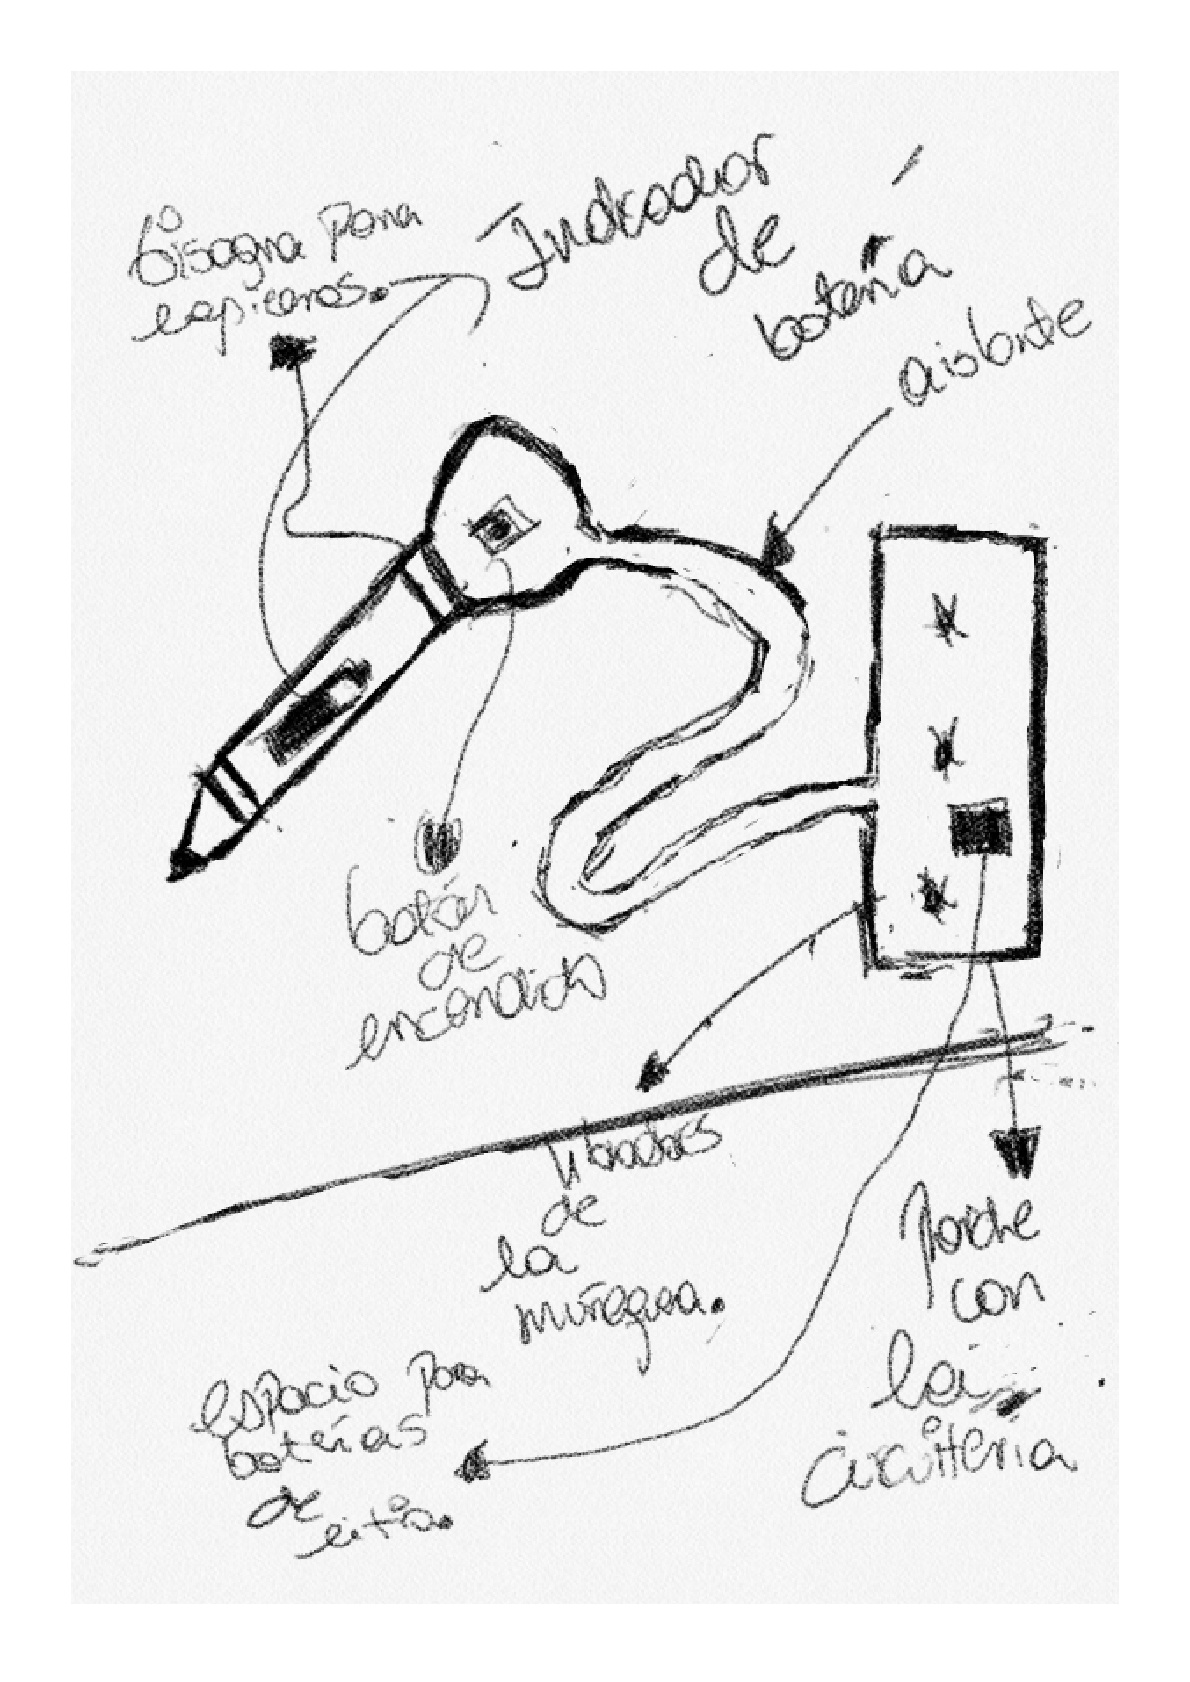 bisagna para
lapiceros.
Indicador
de
batería
aislante
botón
de
encendido
vibradores
de
la
muñequea.
Parche
con
la
circuitería
espacio para
baterías
de
litio.